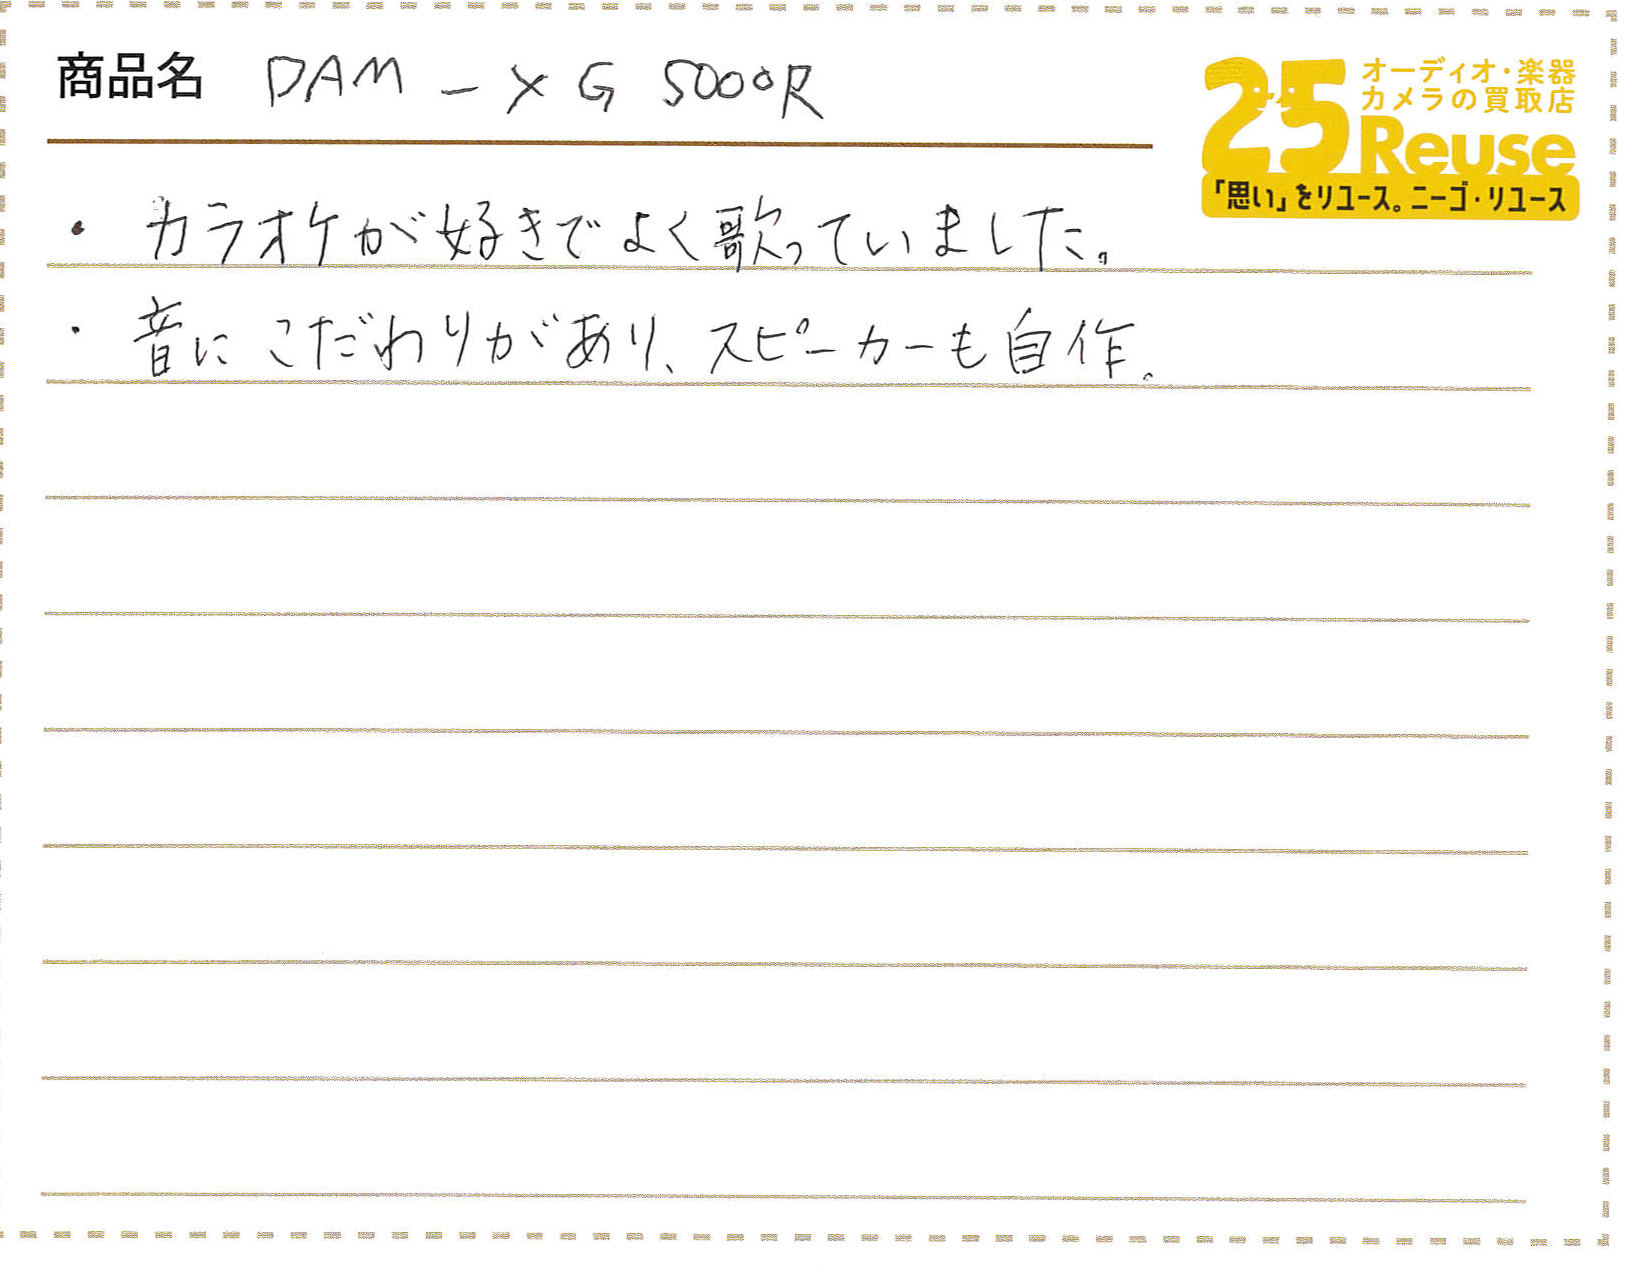 商品名 DAM-XG5000R
オーディオ・楽器
カメラの買取店
25 Reuse
「思い」をリユース。ニーゴ・リユース
・カラオケが好きでよく歌っていました。
・音にこだわりがあり、スピーカーも自作。